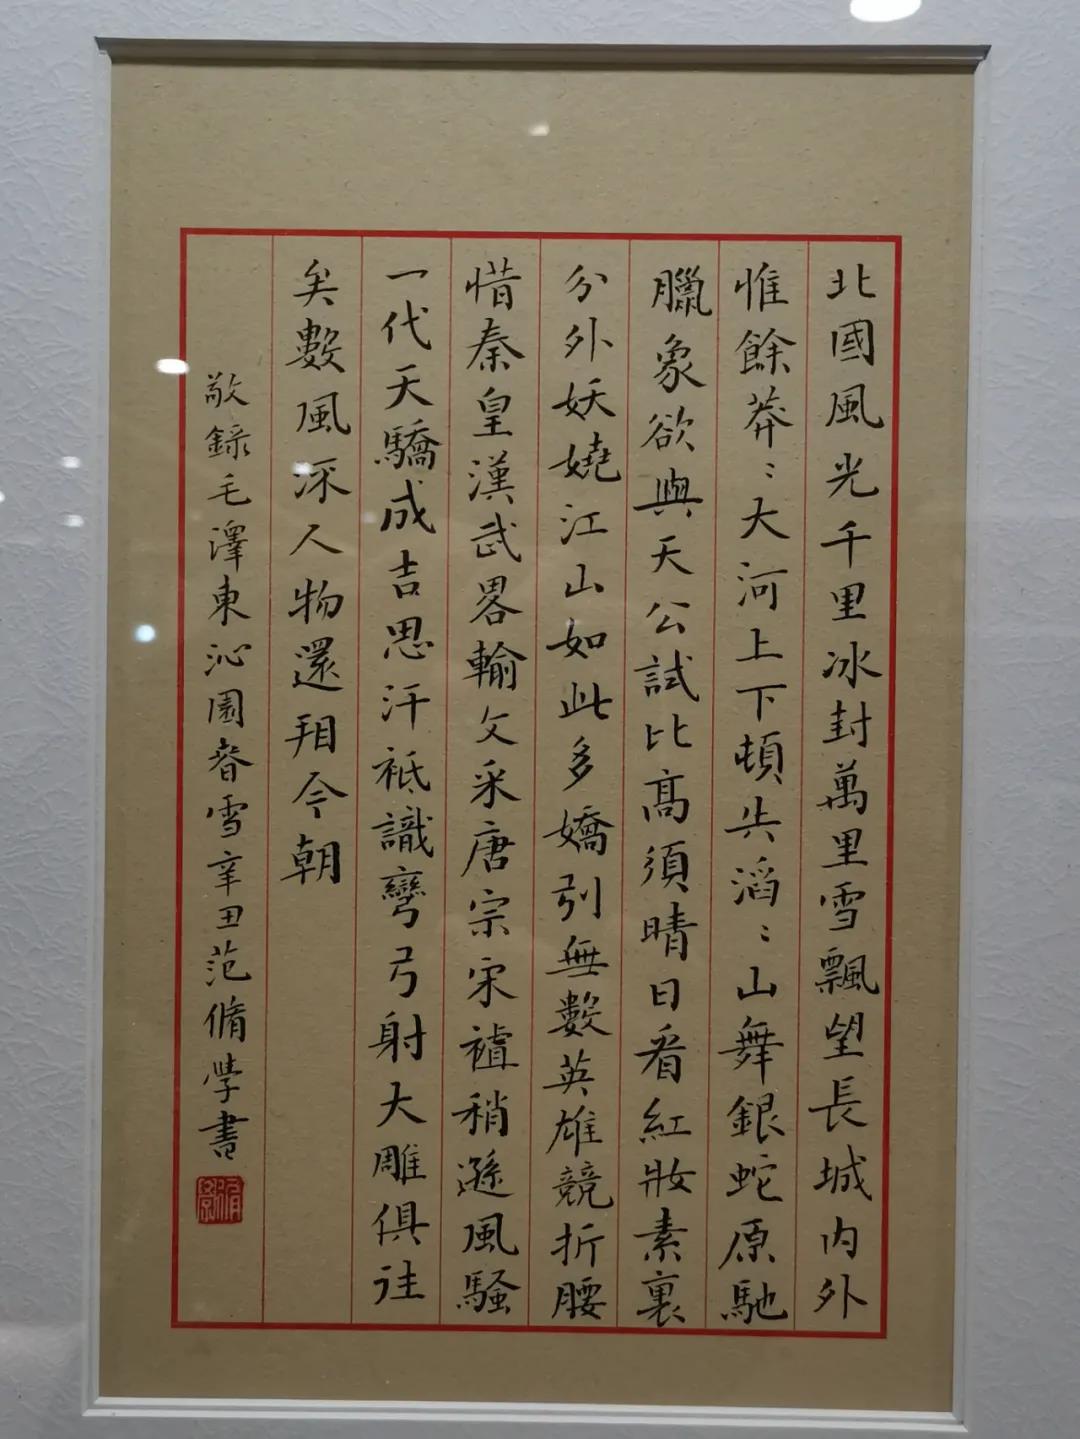 北國風光千里冰封萬里雪飄望長城内外
惟餘莽〻大河上下頓失滔〻山舞銀蛇原馳
臘象欲與天公試比高須晴日看紅妝素裹
分外妖嬈江山如此多嬌引無數英雄競折腰
惜秦皇漢武畧輸文采唐宗宋祖稍遜風騷
一代天驕成吉思汗祗識彎弓射大雕俱往
矣數風流人物還看今朝
敬録毛澤東沁園春雪辛丑范脩學書